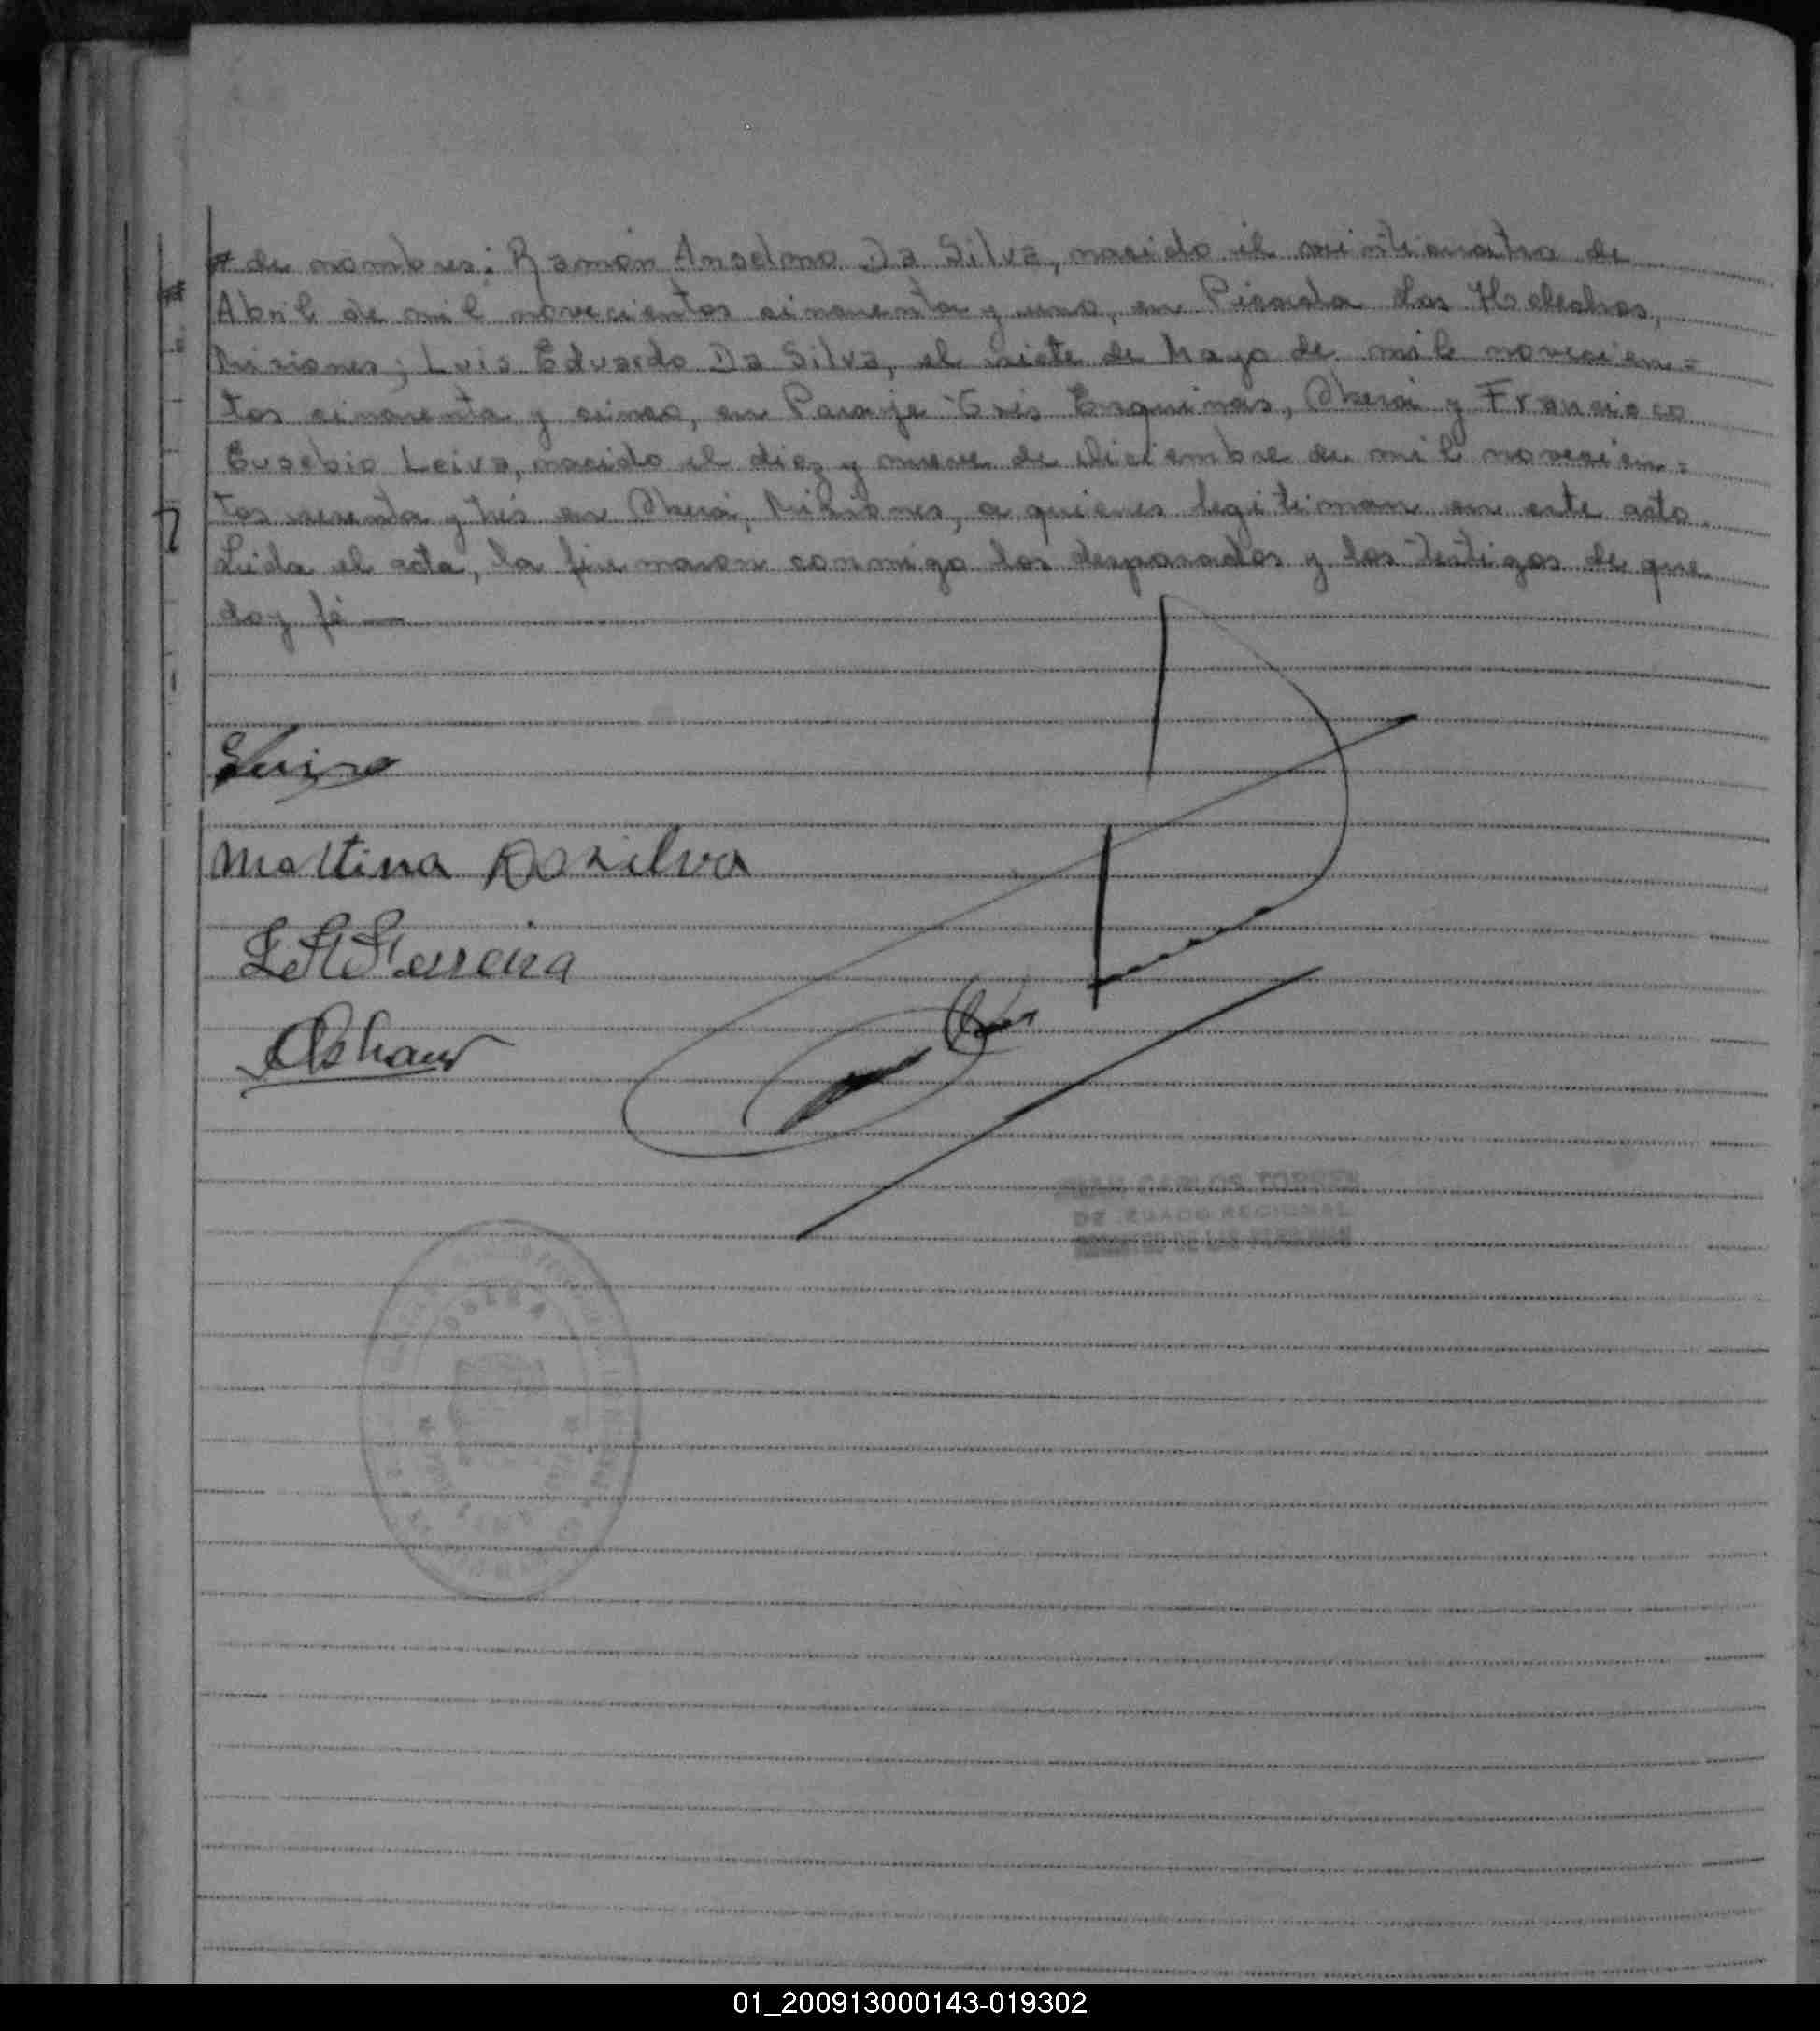 # de nombres: Ramón Anselmo Da Silva, nacido el veinticuatro de
Abril de mil novecientos cincuenta y uno, en Picada Los Helechos,
Misiones; Luis Eduardo Da Silva, el siete de Mayo de mil novecien=
tos cincuenta y cinco, en Paraje Seis Esquinas, Oberá y Francisco
Eusebio Leiva, nacido el diez y nueve de diciembre de mil novecien=
tos sesenta y tres en Oberá, Misiones, a quienes legitiman en este acto.
Leida el acta, la firmaron conmigo los desposados y los testigos de que
doy fé —
Martina Dasilva
JUAN CARLOS TORRES
REGIONAL
OBERA
01_200913000143-019302